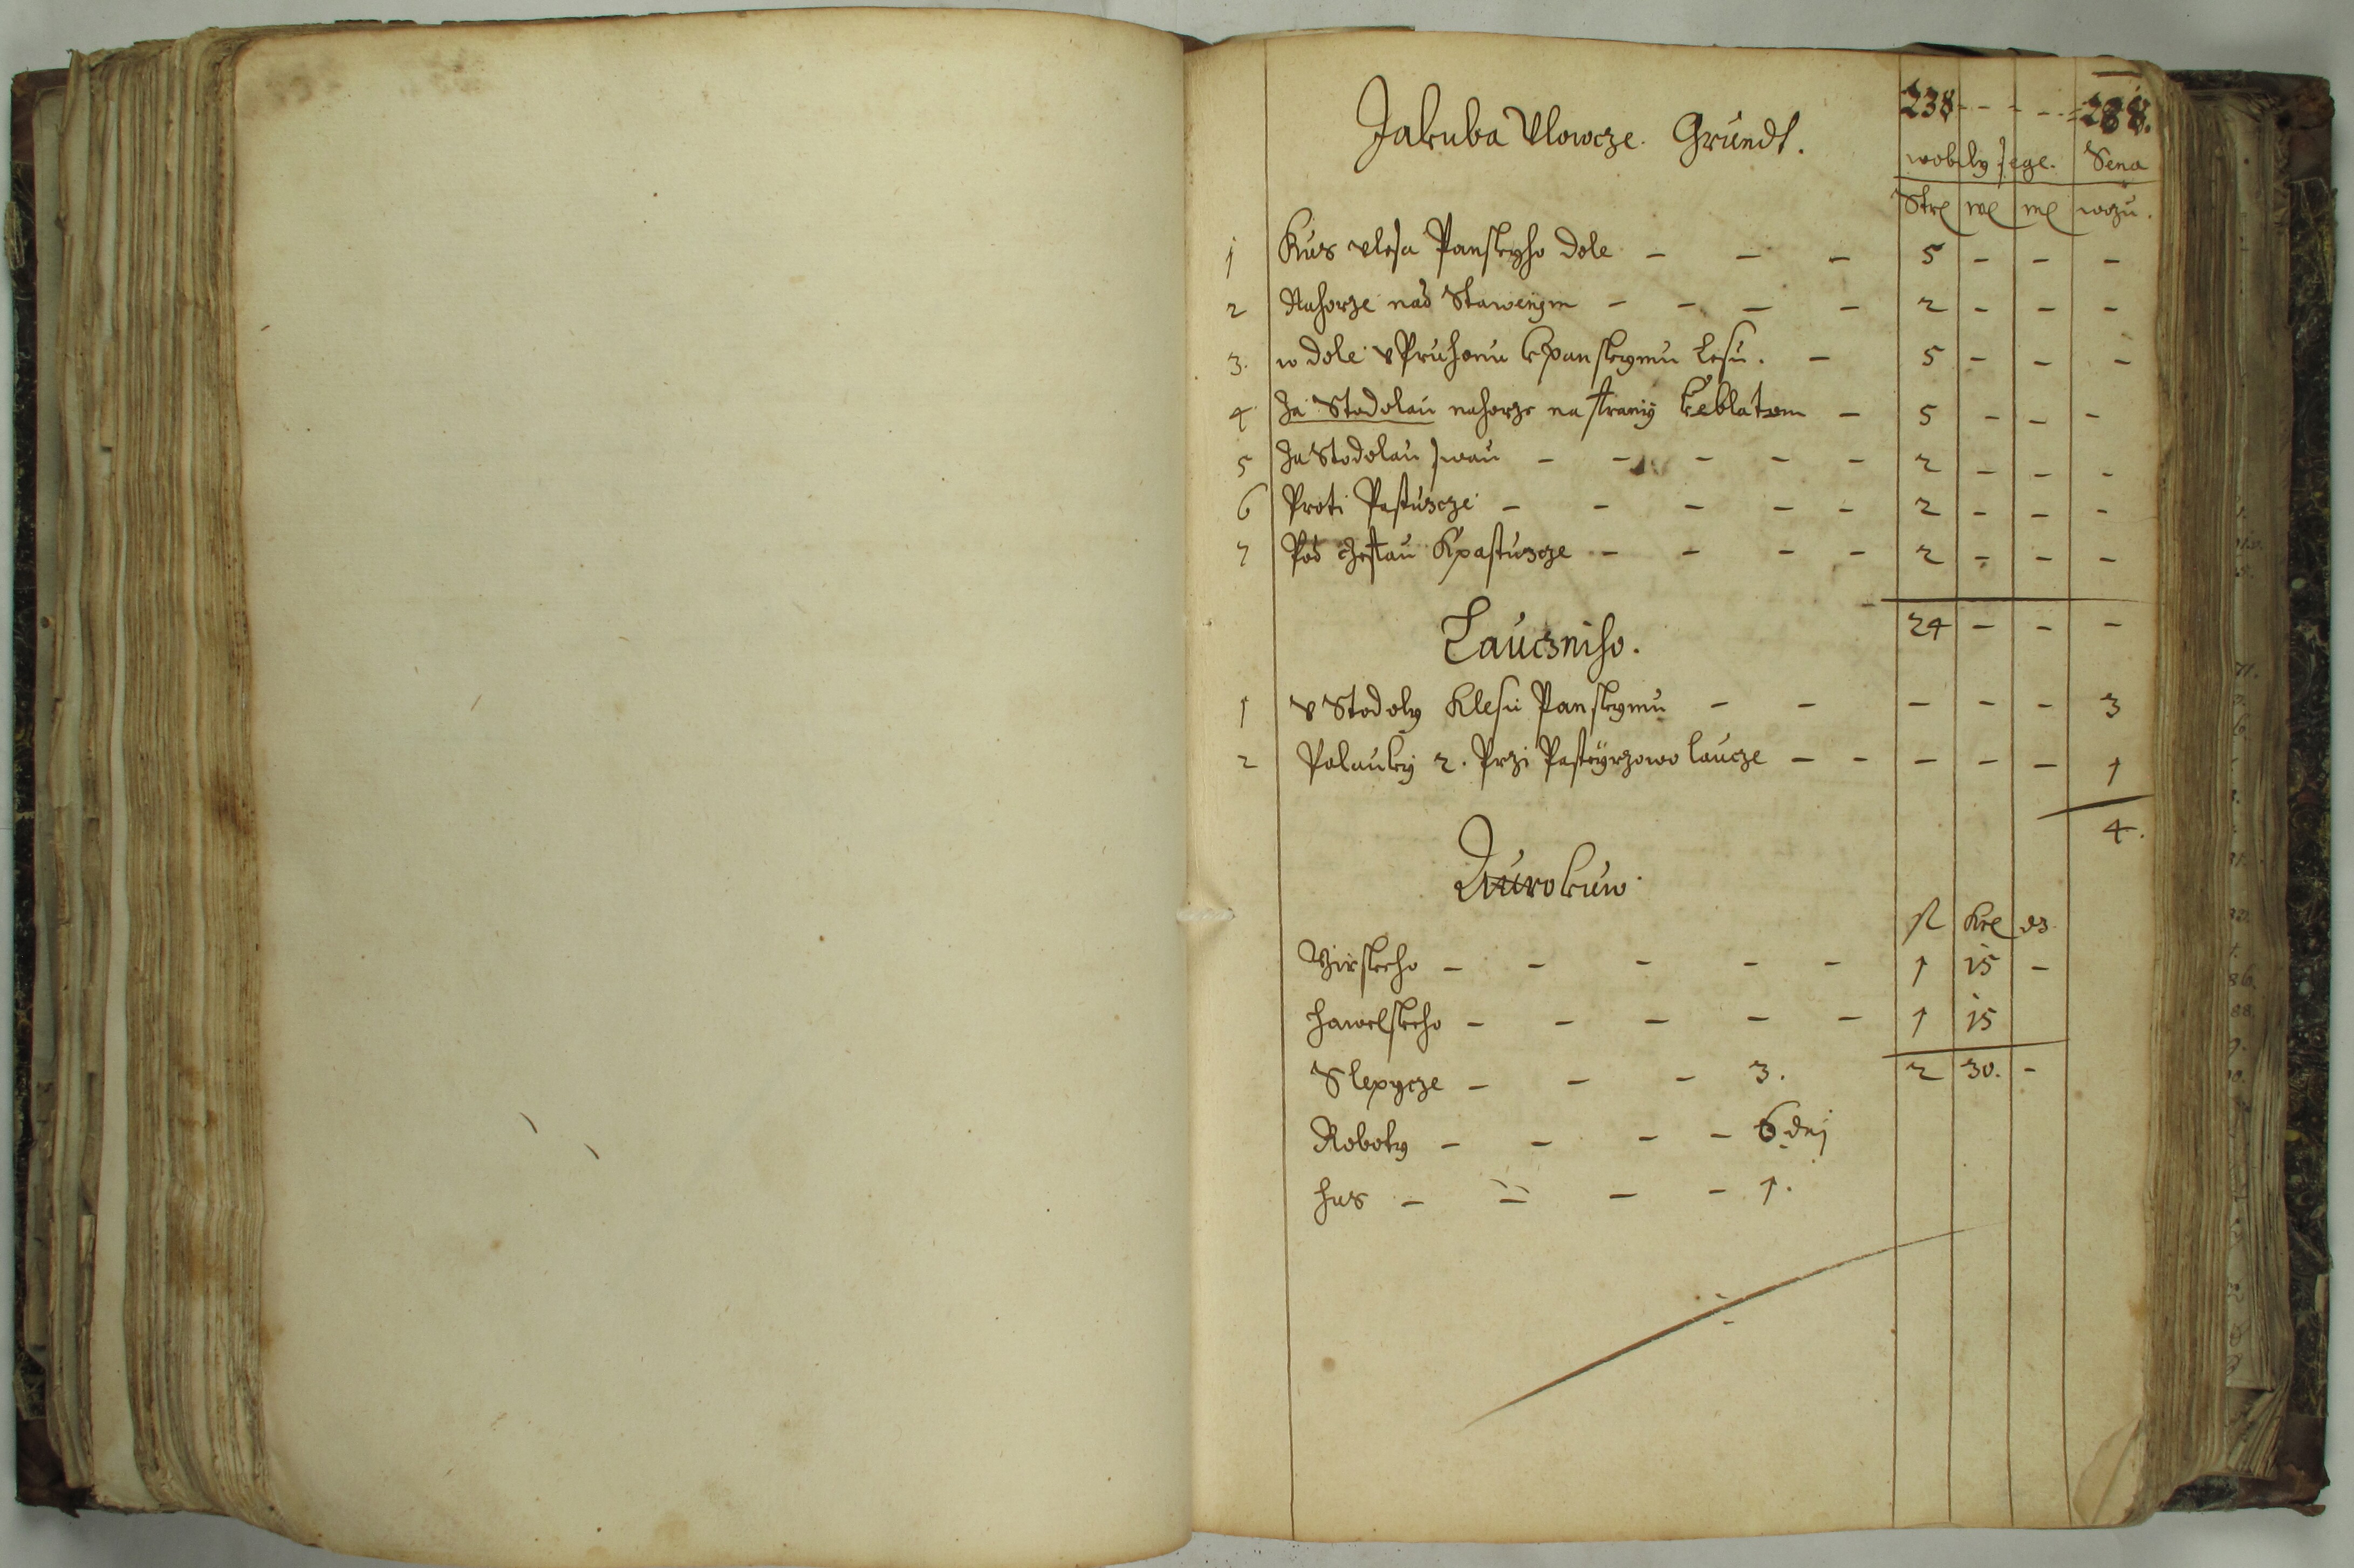 238 - - - - - 238.
Jakuba Vlowcze. Grundt.
wobily sege. Sena
Str we me wozu.
1 Kus vlesa Panskyho dole - - - 5 - - -
2 Nahorze nad Stawenym - - - - 2 - - -
3. w dole v Pruhonu k panskymu Lesu. - 5 - - -
4 Za Stodolau nahorze na stranij keblatom - 5 - - -
5 Za Stodolau - - - - - 2 - - -
6 Proti Pastuscze - - - - - 2 - - -
7 Pod Czestau K pastuscze - - - - 2 - - -
24 - - -
Lauczniho.
1 v Stodoly K lesu Panskymu - - - - - 3
2 Palauky 2. Przi Pasteyrzowo laucze - - - - - 1
4.
Aurokuw.
kre d3
Girskeho - - - - - 1 15 -
Hawelskeho - - - - - 1 15
2 30. -
Slepycze - - - 3.
Roboty - - - - 6 dnj
Hus - - - - 1.